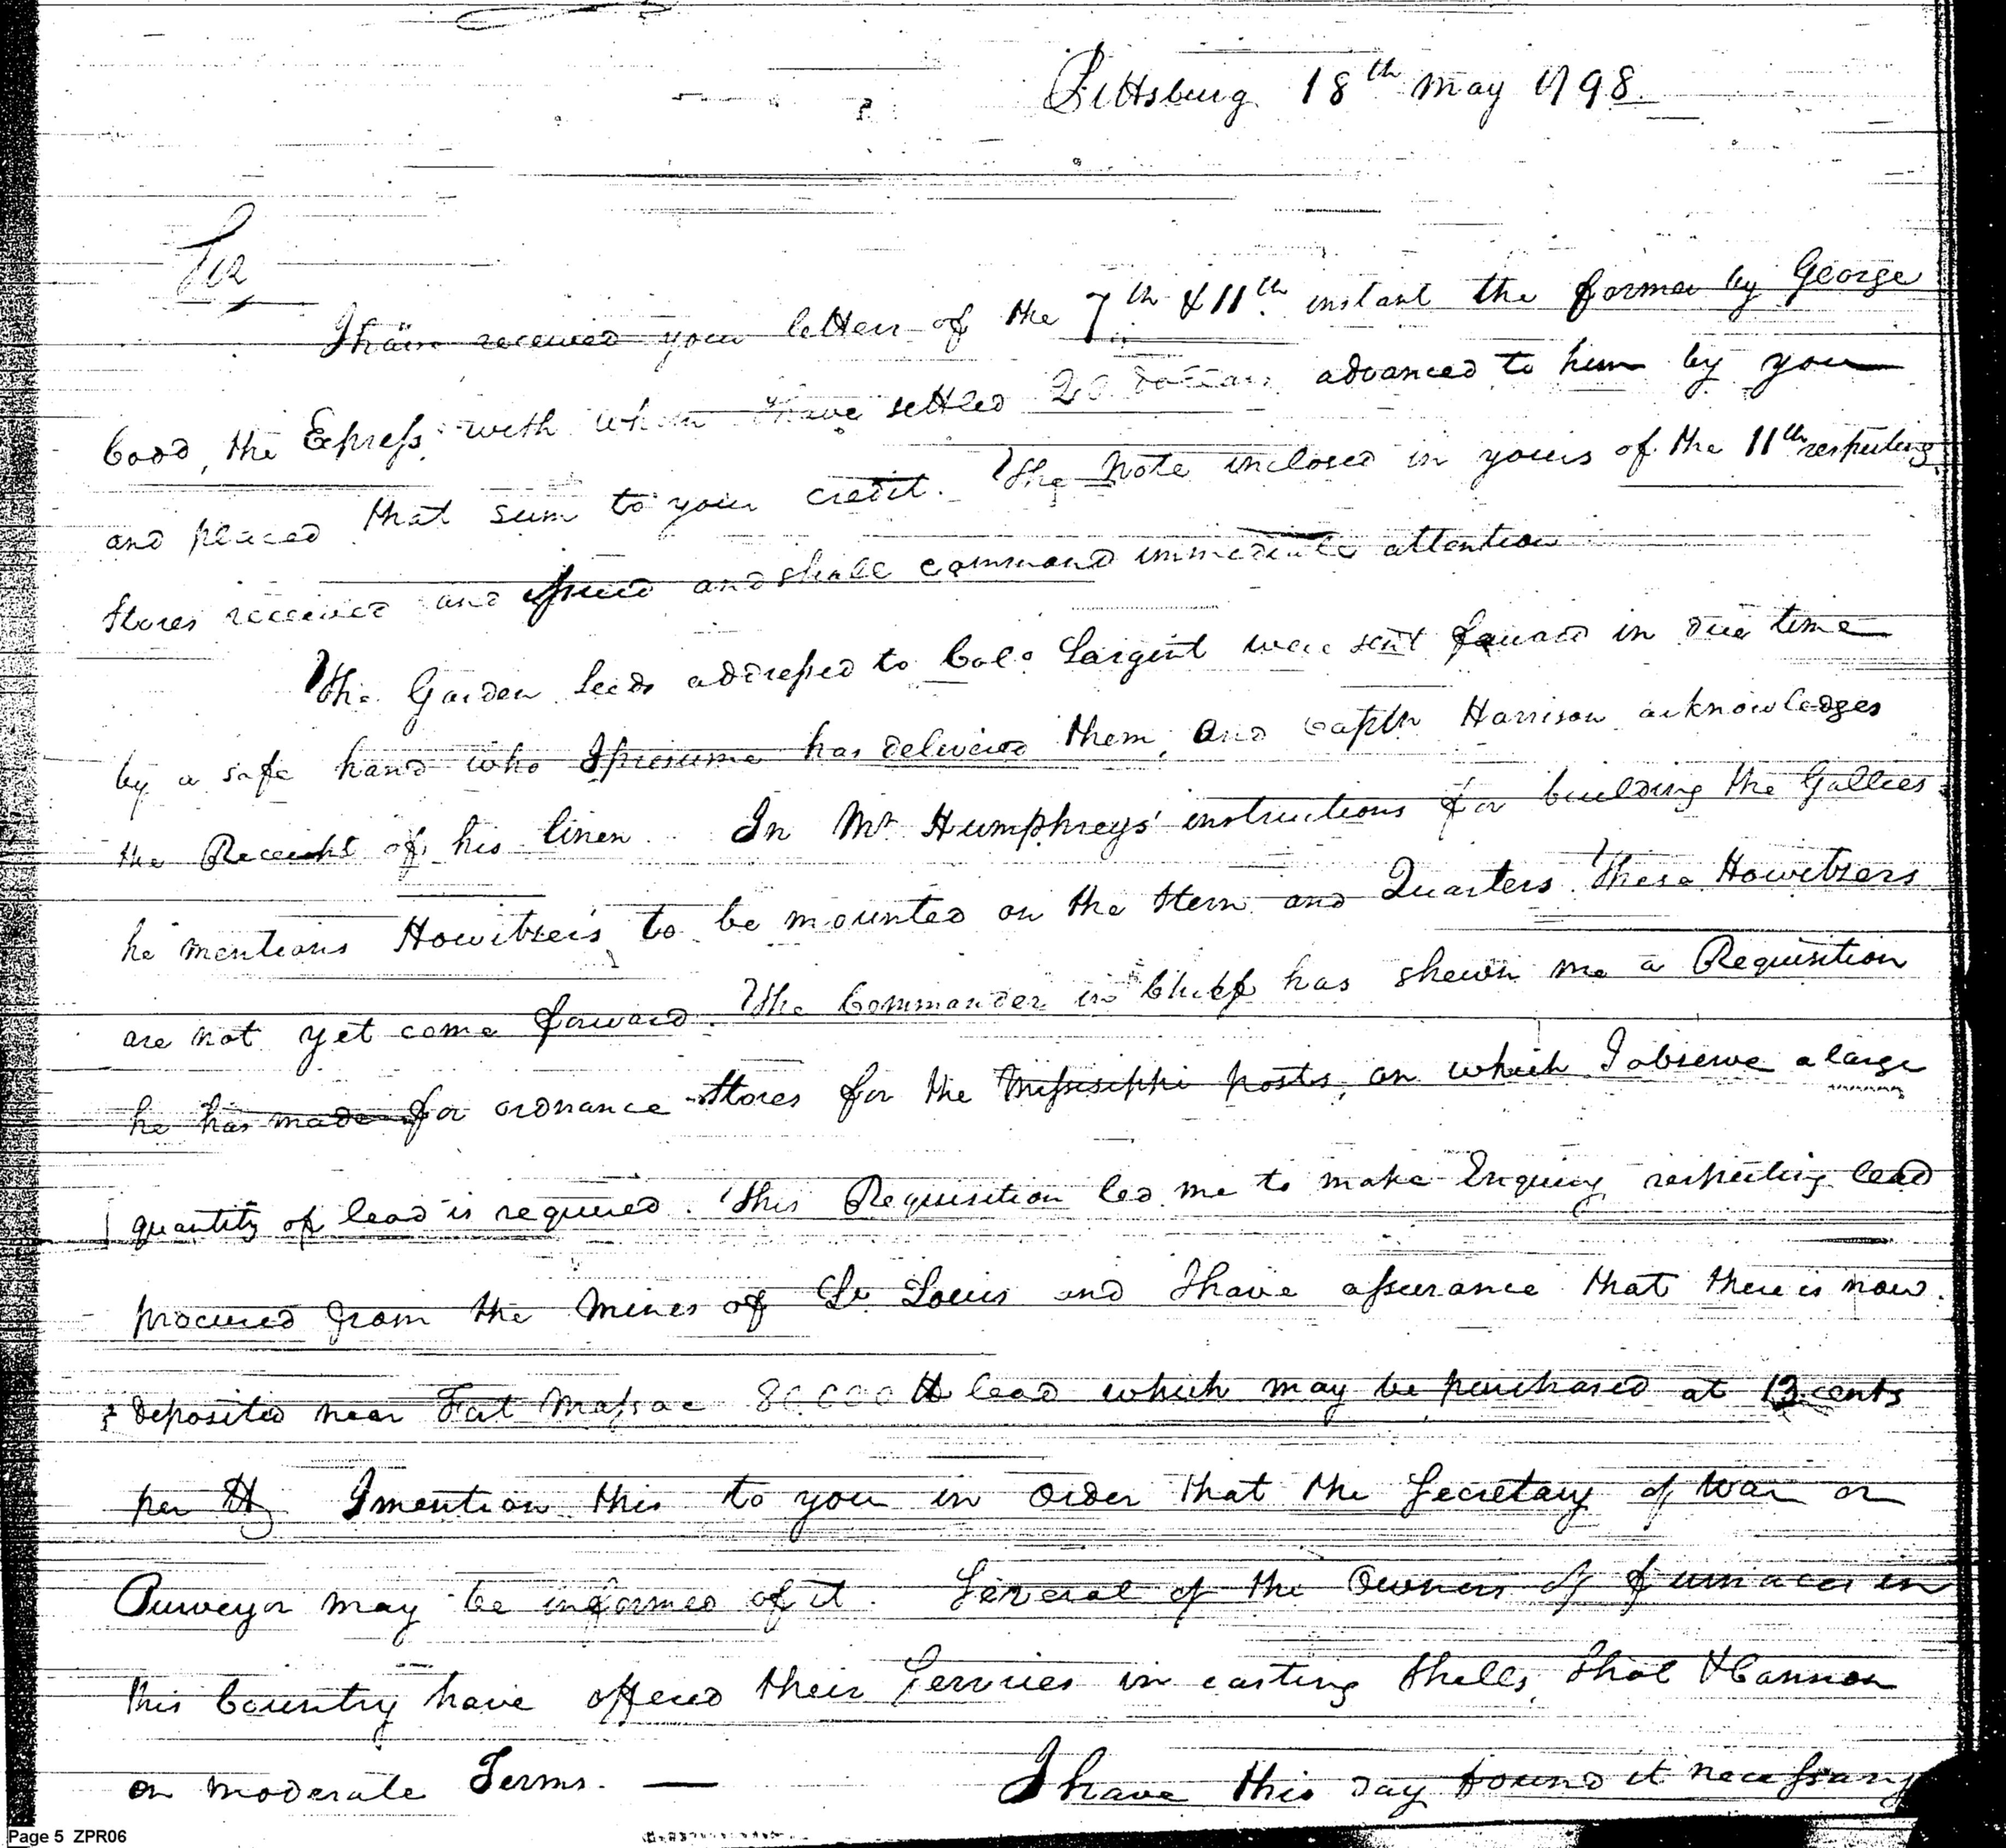 Pittsburg 18th May 1798.
Sir
I have received your letters of the 7th & 11th instant the former by George
Cood, the Express, with whom I have settled 20 dollars advanced to him by you
and placed that sum to your credit. The Note inclosed in yours of the 11th respecting
Stores received and Issued and shall command immediate attention
The Garden Seeds addressed to Colo Sargint were sent forward in due time
by a safe hand who I presume has delivered them, and Captn Harrison acknowledges
the Receipt of his linen. In Mr Humphreys' instructions for building the Gallies
he mentions Howitzers to be mounted on the Stern and Quarters. These Howitzers
are not yet come forward. The Commander in Chief has shewn me a Requisition
he has made for ordnance Stores for the Missisippi posts, on which I observe a large
quantity of lead is required. This Requisition led me to make Enquiry respecting lead
procured from the Mines of St Louis and I have assurance that there is now
deposited near Fort Massac 80.000 lb lead which may be purchased at 13 cents
per lb. I mention this to you in order that the Secretary of War or
Purveyor may be informed of it. Several of the Owners of furnaces in
this Country have offered their Services in casting Shells, Shot & Cannon
on moderate Terms. — I have this day found it necessary
Page 5 ZPR06